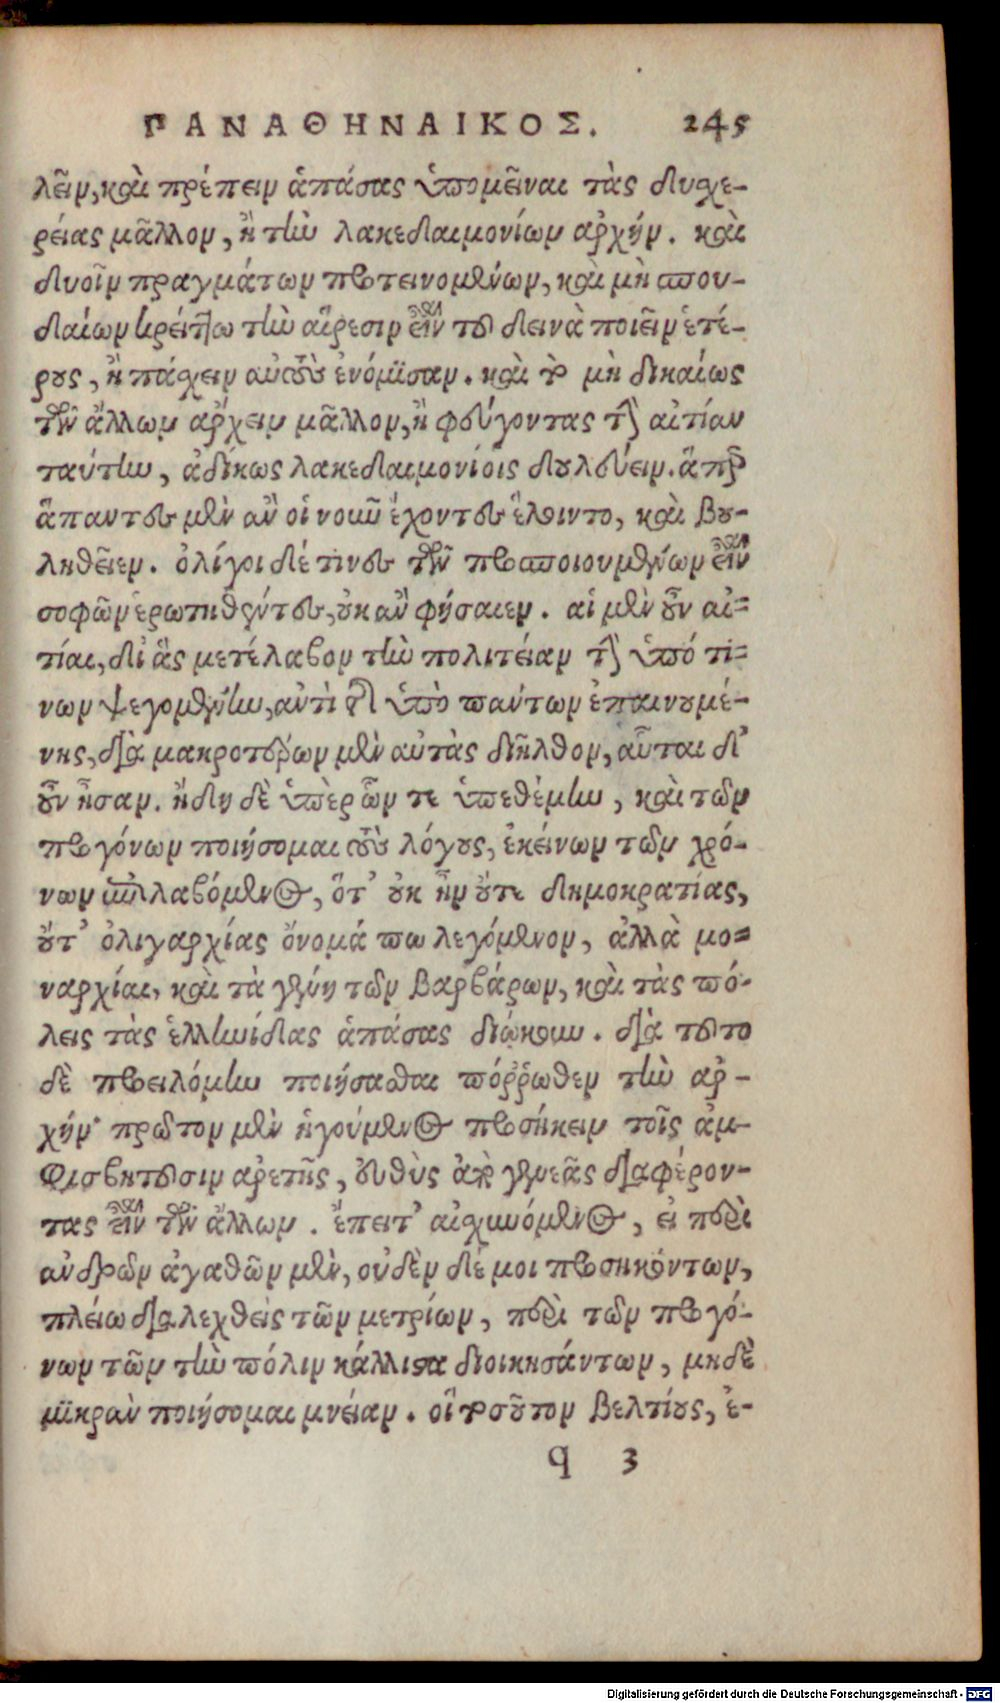 ΠΑΝΑΘΗΝΑΙΚΟΣ. 245
λεῖν, καὶ πρέπειν ἁπάσας ὑπομεῖναι τὰς δυσχε-
ρείας μᾶλλον, ἢ τὴν λακεδαιμονίων ἀρχήν. καὶ
δυοῖν πραγμάτων προτεινομένων, καὶ μὴ σπου-
δαίων κρείττω τὴν αἵρεσιν εἶναι τοῦ δεινὰ ποιεῖν ἑτέ-
ρους, ἢ πάσχειν αὐτοὺς ἐνόμισαν. καὶ τοῦ μὴ δικαίως
τῶν ἄλλων ἄρχειν μᾶλλον, ἢ φεύγοντας τὴν αἰτίαν
ταύτην, ἀδίκως λακεδαιμονίοις δουλεύειν. ἅπερ
ἅπαντες μὲν ἂν οἱ νοῦν ἔχοντες ἕλοιντο, καὶ βου-
ληθεῖεν. ὀλίγοι δέ τινες τῶν προσποιουμένων εἶναι
σοφῶν ἐρωτηθέντες, οὐκ ἂν φήσαιεν. αἱ μὲν οὖν αἰ-
τίαι, δι' ἃς μετέλαβον τὴν πολιτείαν τὴν ὑπό τι-
νων ψεγομένην, ἀντὶ τῆς ὑπὸ πάντων ἐπαινουμέ-
νης, διὰ μακροτέρων μὲν αὐτὰς διῆλθον, αὗται δ'
οὖν ἦσαν. ἤδη δὲ ὑπὲρ ὧν τε ὑπεθέμην, καὶ τῶν
προγόνων ποιήσομαι τοὺς λόγους, ἐκείνων τῶν χρό-
νων ἐπιλαβόμενος, ὅτ' οὐκ ἦν οὔτε δημοκρατίας,
οὔτ' ὀλιγαρχίας ὄνομά πω λεγόμενον, ἀλλὰ μο-
ναρχίαι, καὶ τὰ γένη τῶν βαρβάρων, καὶ τὰς πό-
λεις τὰς ἑλληνίδας ἁπάσας διῴκουν. διὰ τοῦτο
δὲ προειλόμην ποιήσασθαι πόρρωθεν τὴν ἀρ-
χήν· πρῶτον μὲν ἡγούμενος προσήκειν τοῖς ἀμ-
φισβητοῦσιν ἀρετῆς, εὐθὺς ἀπὸ γενεᾶς διαφέρον-
τας εἶναι τῶν ἄλλων. ἔπειτ' αἰσχυνόμενος, εἰ περὶ
ἀνδρῶν ἀγαθῶν μὲν, οὐδὲν δέ μοι προσηκόντων,
πλείω διαλεχθεὶς τῶν μετρίων, περὶ τῶν προγό-
νων τῶν τὴν πόλιν κάλλιστα διοικησάντων, μηδὲ
μικρὰν ποιήσομαι μνείαν. οἳ τοσοῦτον βελτίους, ἐ-
q 3
Digitalisierung gefördert durch die Deutsche Forschungsgemeinschaft - DFG